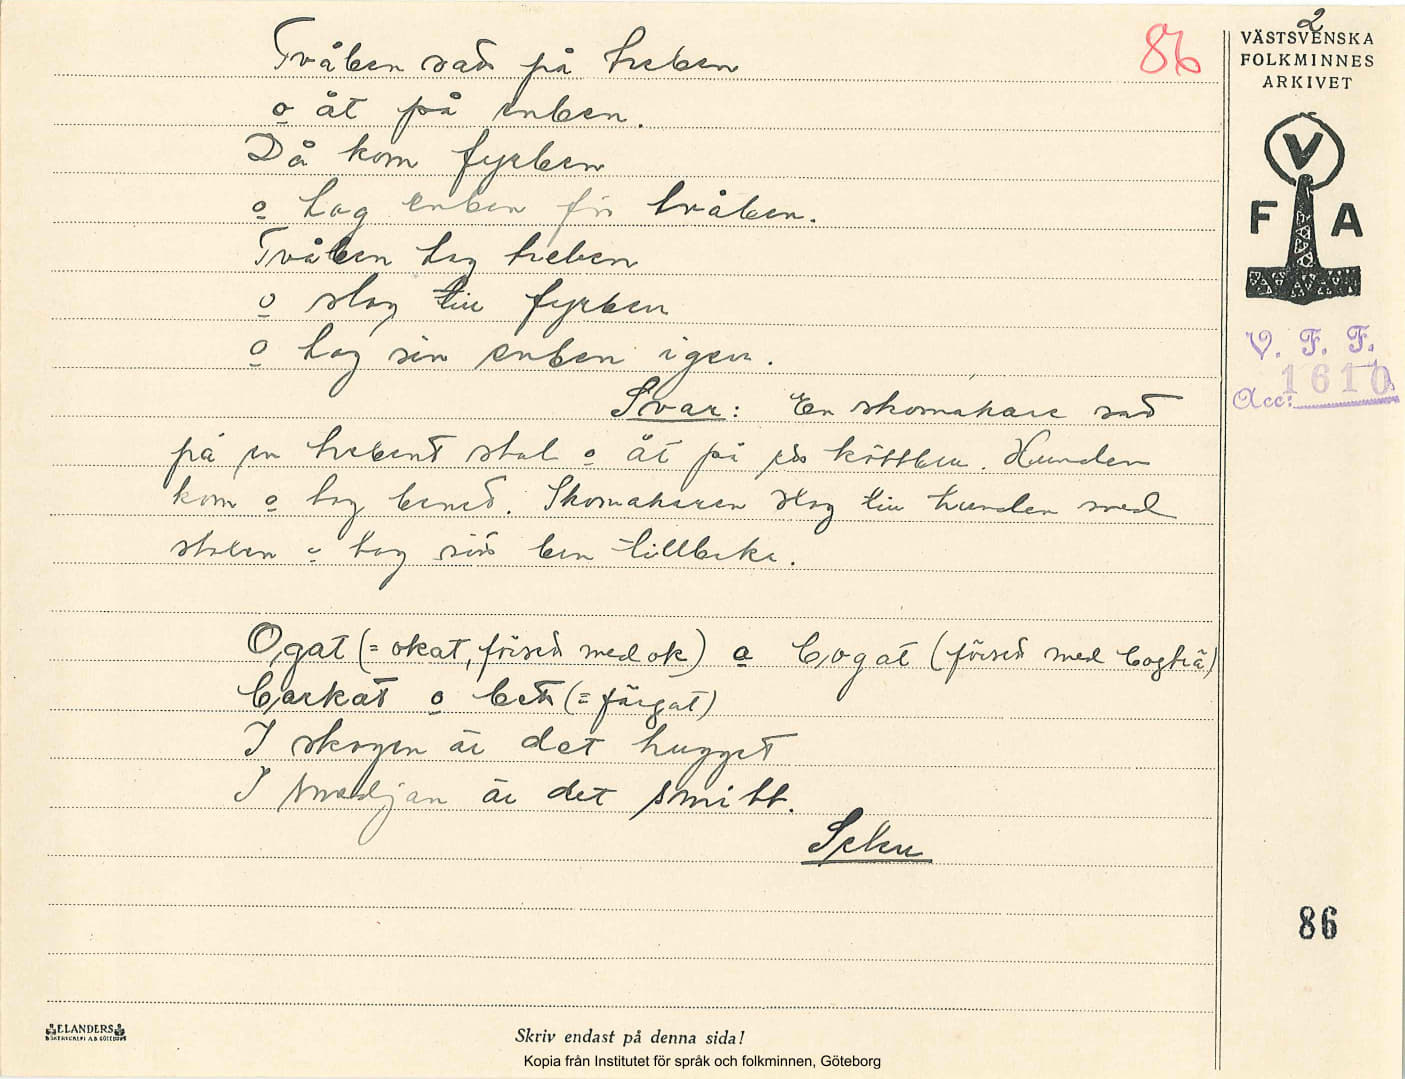 86
2
VÄSTSVENSKA
FOLKMINNES
ARKIVET
V
F A
V. F. F.
Acc: 1610
Tvåben satt på treben
o åt på enben.
Då kom fyrben
o tog enben från tvåben.
Tvåben tog treben
o slog till fyrben
o tog sin enben igen.
Svar: En skomakare satt
på en trebent stol o åt på ett köttben. Hunden
kom o tog benet. Skomakaren slog till hunden med
stolen o tog sitt ben tillbaka.
Ogat (= okat, försett med ok) o bogat (försett med bogträ)
barkat o bett (= färgat)
I skogen är det hugget
I smedjan är det smitt.
Selen
86
ELANDERS
BOKTRYCKERI A.B. GÖTEBORG
Skriv endast på denna sida!
Kopia från Institutet för språk och folkminnen, Göteborg